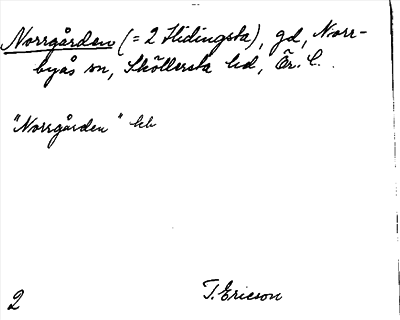 Norrgården (= 2 Hidingsta), gd, Norr-
byås sn, Sköllersta hd, Ör. l.
"Norrgården" hb
2 T. Ericson